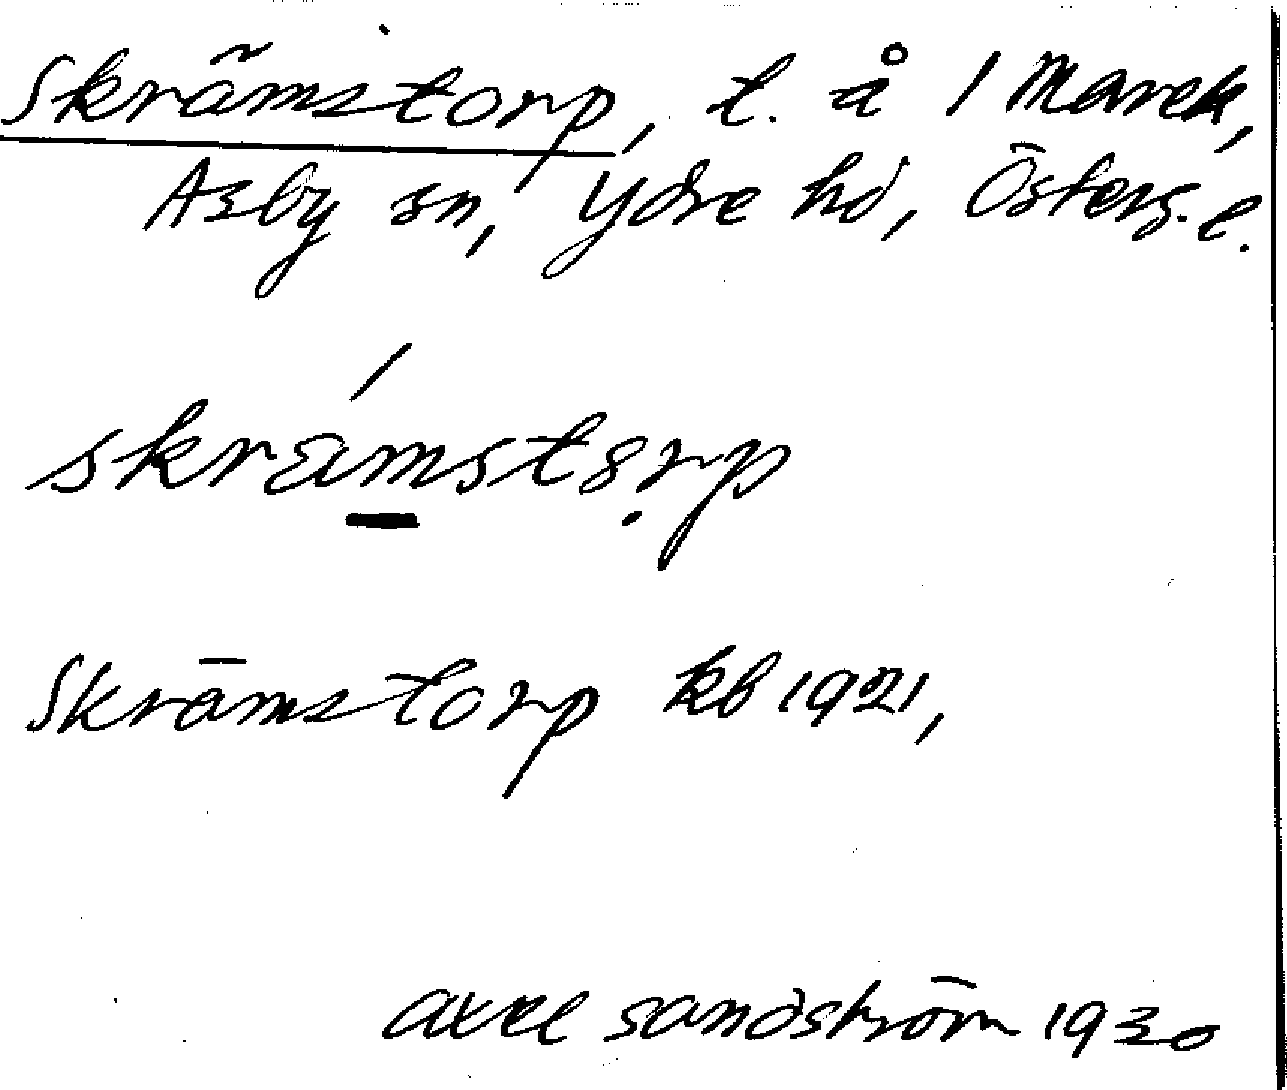 Skrämstorp, t. å 1 Marek,
Asby sn, Ydre hd, Österg. l.
skrámstorp
Skrämstorp kb 1921,
axel sandström 1930